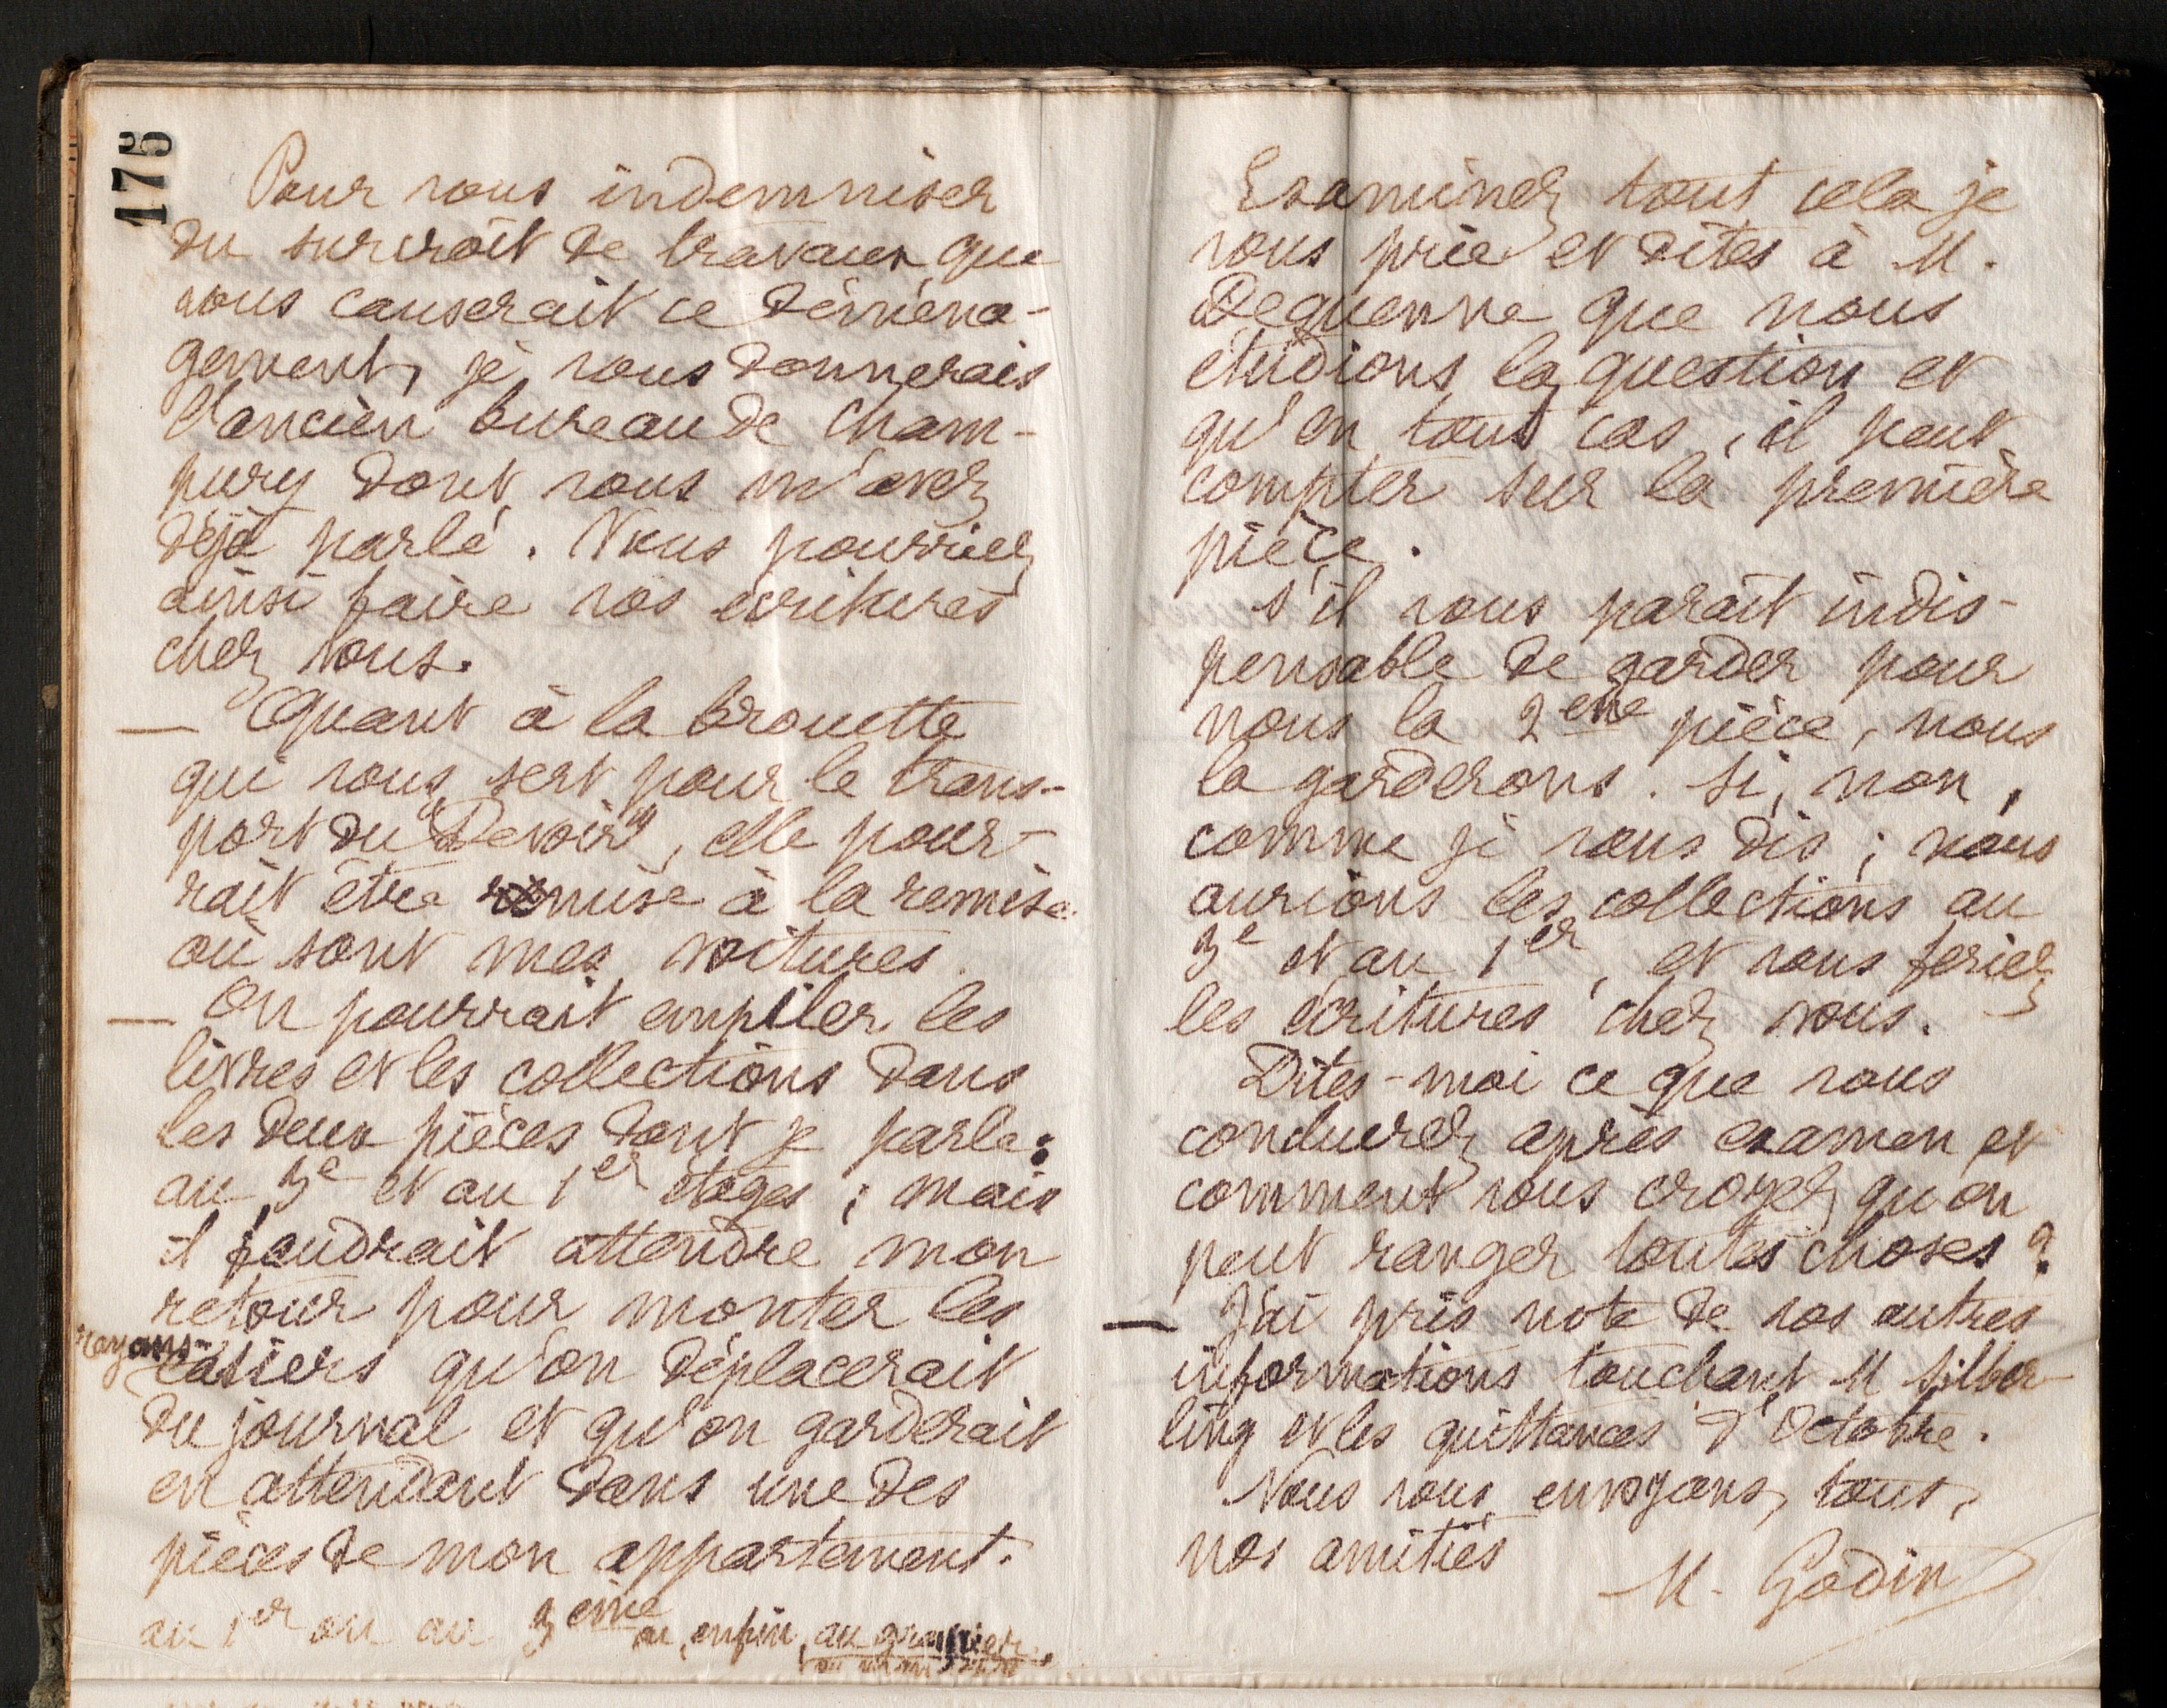 176
Pour vous indemniser
du surcroît de travaux que
vous causerait ce déména-
gement, je vous donnerais
l'ancien bureau de Cham-
pury dont vous m'avez
déjà parlé. Vous pourriez
ainsi faire vos écritures
chez vous.
— Quant à la brouette
qui vous sert pour le trans-
port du "Devoir", elle pour-
rait être remise à la remise
où sont mes voitures.
— On pourrait empiler les
livres et les collections dans
les deux pièces dont je parle:
au 3e et au 1er étages; mais
il faudrait attendre mon
retour pour monter les
rayons-
casiers qu'on déplacerait
du journal et qu'on garderait
en attendant dans une des
pièces de mon appartement.
au 1er ou au 3ème ou enfin, au grenier.
Examinez tout cela je
vous prie et dites à M.
Dequenne que nous
étudions la question et
qu'en tous cas, il peut
compter sur la première
pièce.
S'il vous paraît indis-
pensable de garder pour
nous la 2ème pièce, nous
la garderons. Si, non,
comme je vous dis; nous
aurions les collections au
3e et au 1er, et vous feriez
les écritures chez vous.
Dites-moi ce que vous
concluerez après examen et
comment vous croyez qu'on
peut ranger toutes choses?
— J'ai pris note de vos autres
informations touchant M Silber-
ling et les quittances d'Octobre.
Nous vous envoyons, tous,
nos amitiés
M. Godin